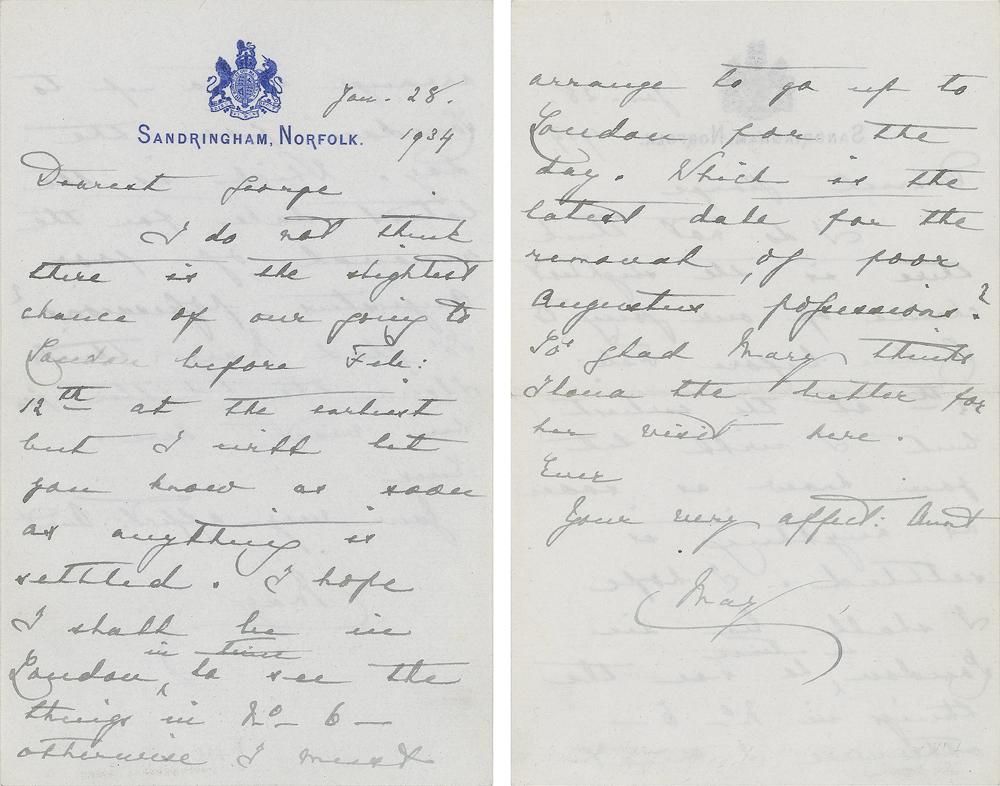 Jan. 28.
SANDRINGHAM, NORFOLK.
1934
Dearest George
I do not think
there is the slightest
chance of our going to
London before Feb:
12th at the earliest
but I will let
you know as soon
as anything is
settled. I hope
I shall be in
in time
London, to see the
things in No 6 —
otherwise I must
arrange to go up to
London for the
day. Which is the
latest date for the
removal of poor
Augustus possessions?
So glad Mary thinks
Ilona the better for
her visit here.
Ever
Your very affect: Aunt
May